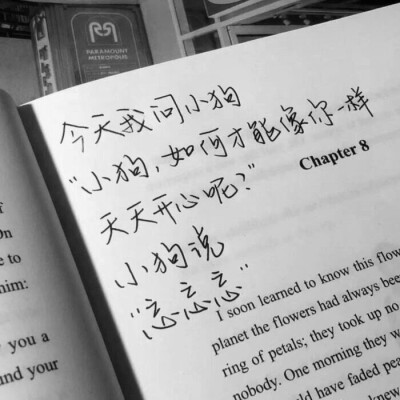 PARAMOUNT
METROPOLIS
今天我问小狗
"小狗,如何才能像你一样
天天开心呢?"
小狗说
"忘忘忘"
On
e to
him:
you a
nd your
Chapter 8
I soon learned to know this flow
planet the flowers had always bee
ring of petals; they took up no
nobody. One morning they w
ld have faded pea
knew